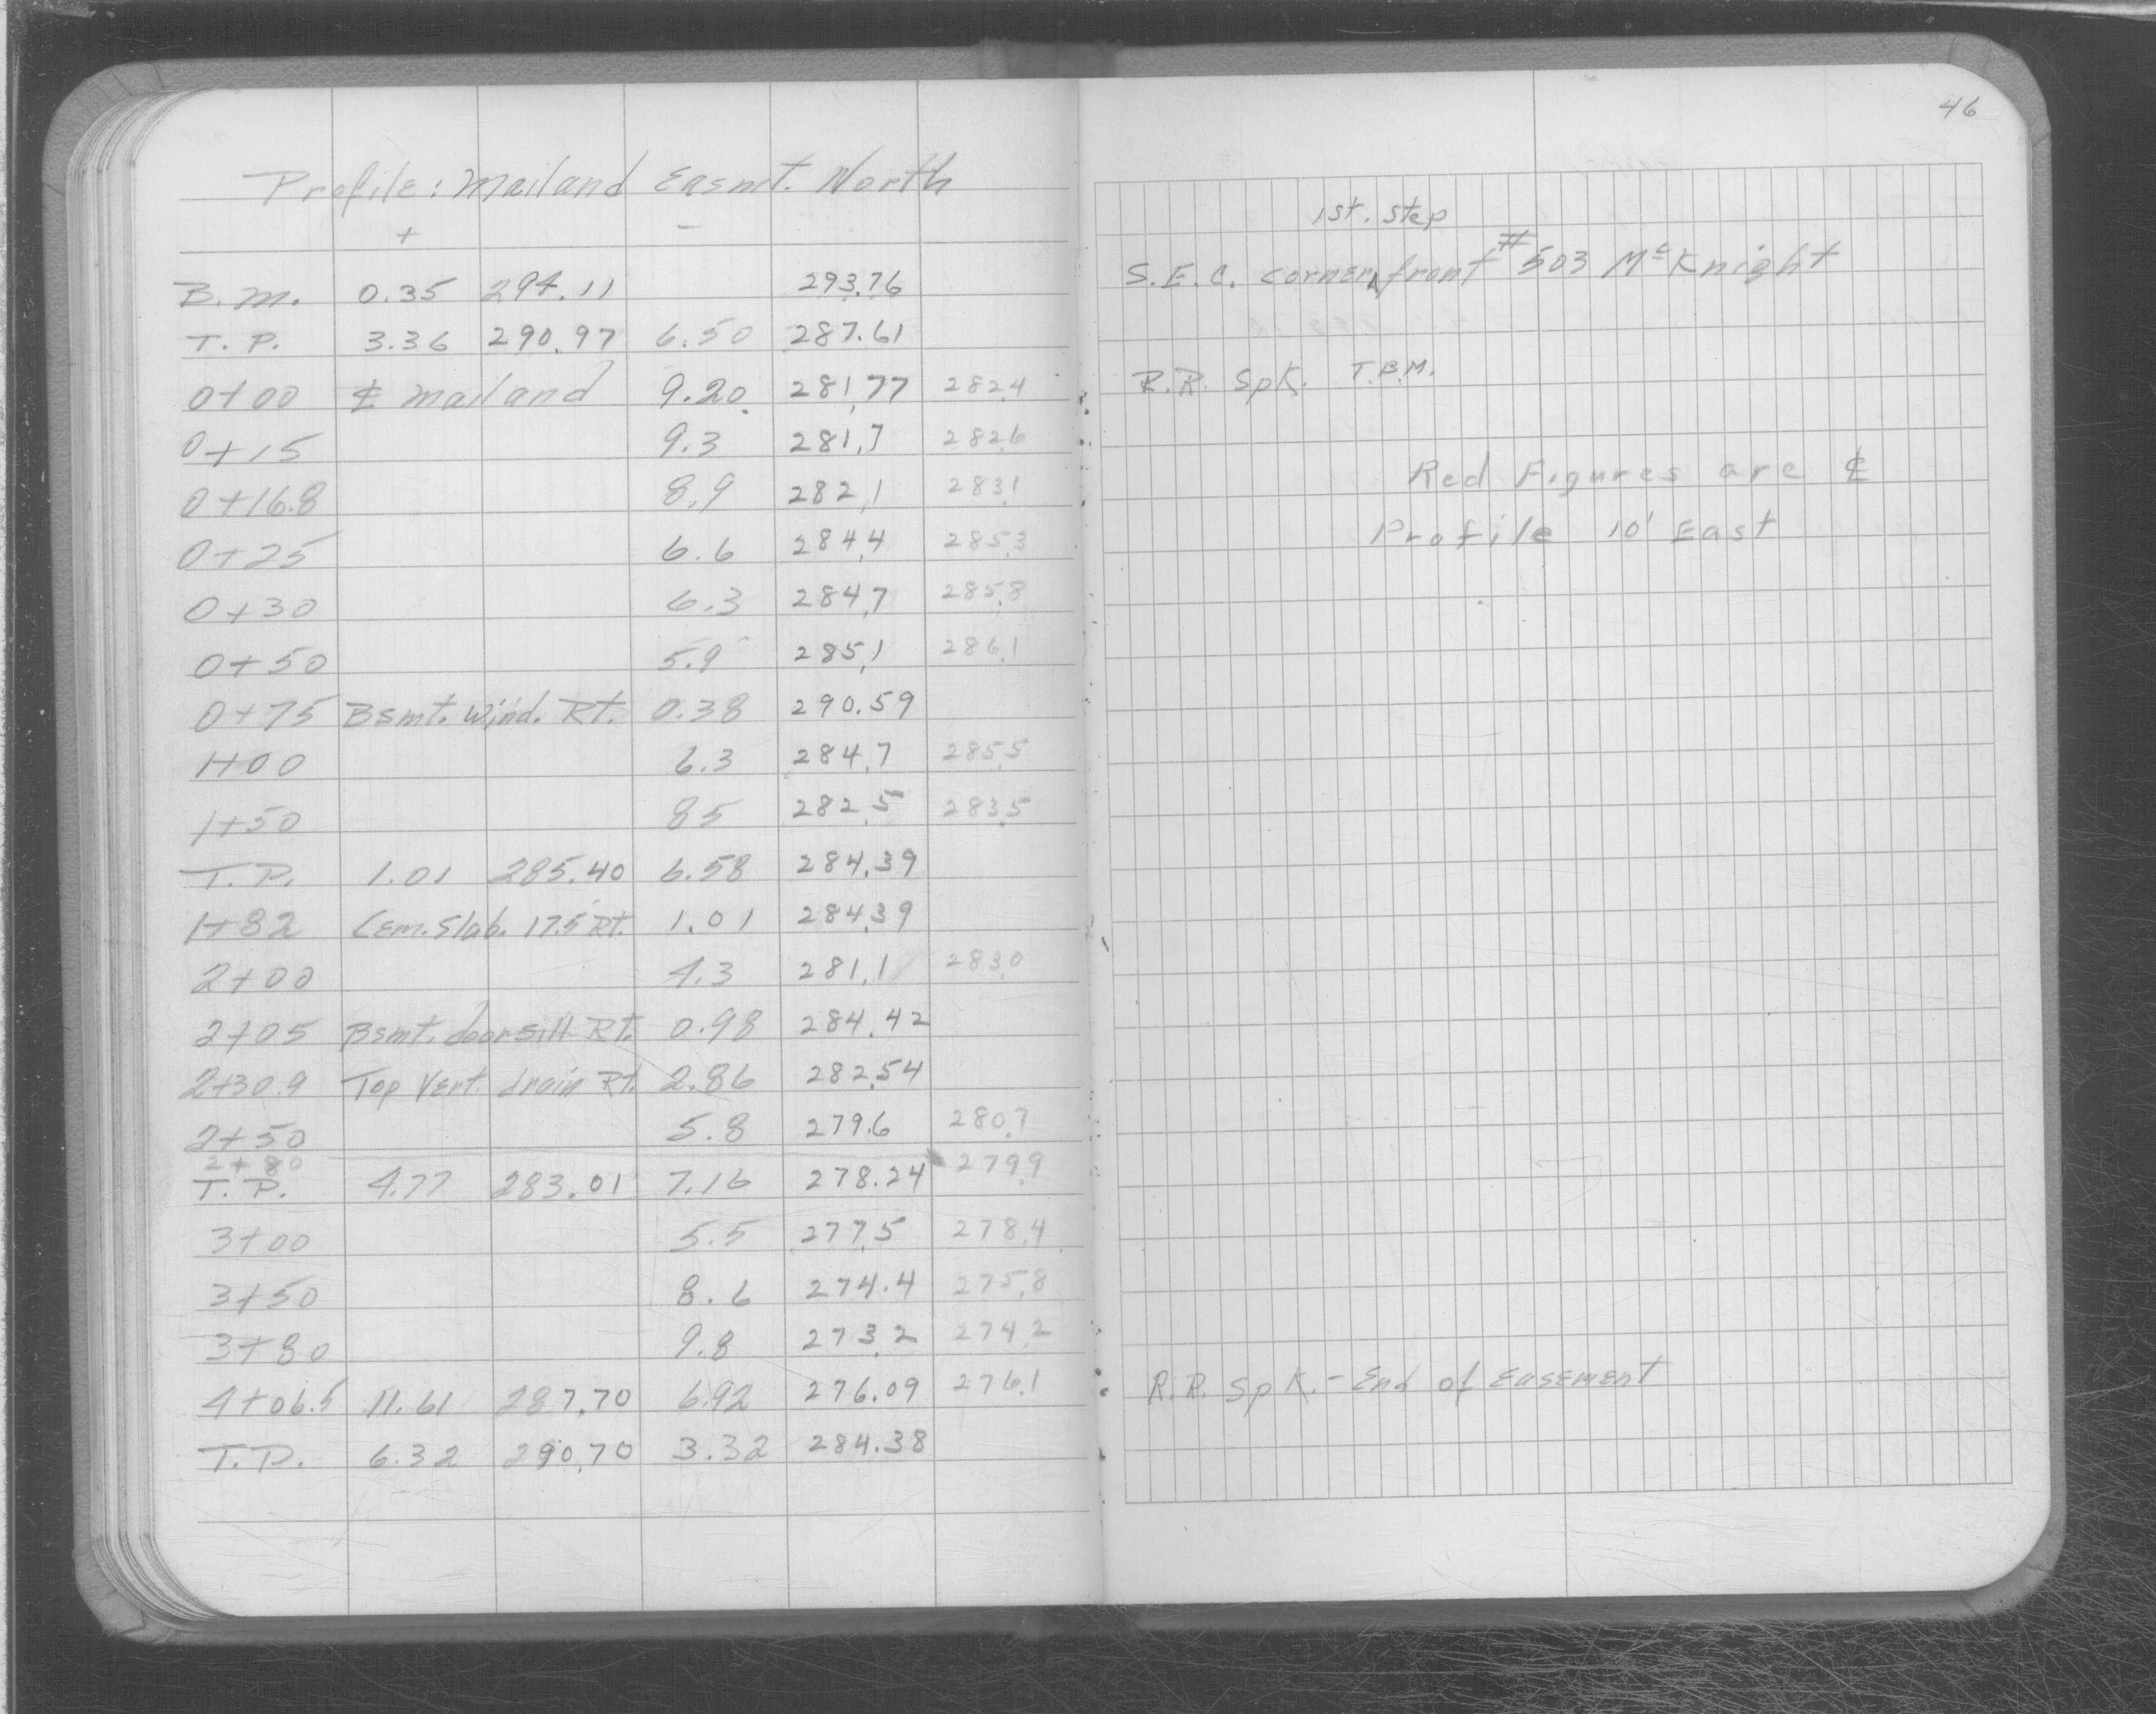 Profile: Mailand Easmt. North
+ -
B.M. 0.35 294.11 293.76
T.P. 3.36 290.97 6.50 287.61
0+00 ℄ Mailand 9.20 281.77 282.4
0+15 9.3 281.7 282.6
0+16.8 8.9 282.1 283.1
0+25 6.6 284.4 285.3
0+30 6.3 284.7 285.8
0+50 5.9 285.1 286.1
0+75 Bsmt. Wind. Rt. 0.38 290.59
1+00 6.3 284.7 285.5
1+50 85 282.5 283.5
T.P. 1.01 285.40 6.58 284.39
1+82 Cem. Slab. 17.5' Rt. 1.01 284.39
2+00 4.3 281.1 283.0
2+05 Bsmt. doorsill Rt. 0.98 284.42
2+30.9 Top Vert. drain Rt. 2.86 282.54
2+50 5.8 279.6 280.7
2+80
T.P. 4.77 283.01 7.16 278.24 279.9
3+00 5.5 277.5 278.4
3+50 8.6 274.4 275.8
3+80 9.8 273.2 274.2
4+06.5 11.61 287.70 6.92 276.09 276.1
T.P. 6.32 290.70 3.32 284.38
46
1st. Step
S.E.C. corner front #503 McKnight
R.R. Spk. T.B.M.
Red Figures are ℄
Profile 10' East
R.R. Spk. - End of Easement